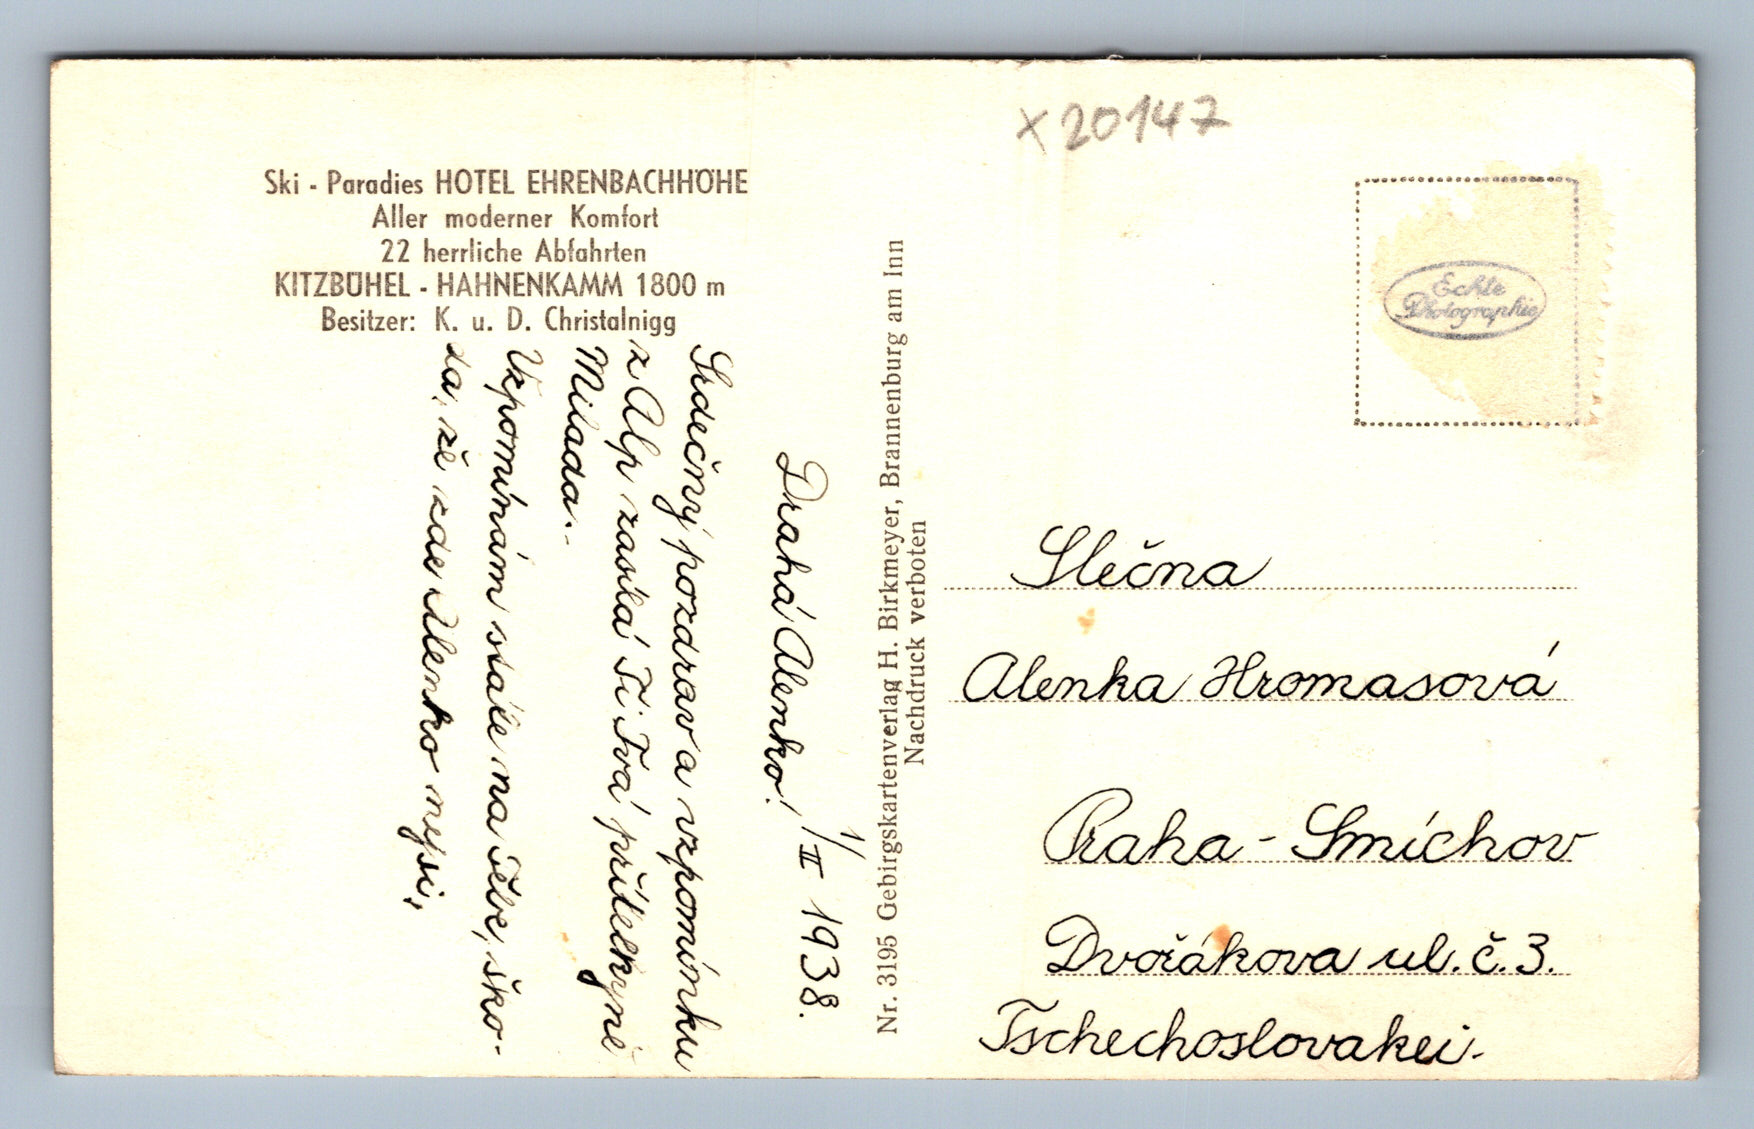 x 20147
Ski - Paradies HOTEL EHRENBACHHÖHE
Aller moderner Komfort
22 herrliche Abfahrten
KITZBÜHEL - HAHNENKAMM 1800 m
Besitzer: K. u. D. Christalnigg
Drahá Alenko! 1/II 1938.
Srdečný pozdrav a vzpomínku
z Alp zasílá Ti Tvá přítelkyně
Milada.
Vzpomínám stále na Tebe, ško-
da, že zde Alenko nejsi.
Nr. 3195 Gebirgskartenverlag H. Birkmeyer, Brannenburg am Inn
Nachdruck verboten
Echte
Photographie
Slečna
Alenka Hromasová
Praha - Smíchov
Dvořákova ul. č. 3.
Tschechoslovakei.